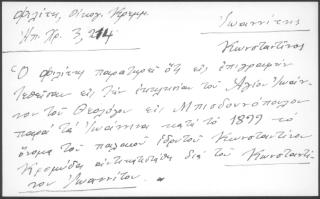 Φιλίτης, Οἰκογ. Κρεμμ.
Ἠπ. Χρ. 3, 214
Ἰωαννίτης
Κωνσταντῖνος
Ὁ Φιλίτης παρατηρεῖ ὅτι εἰς ἐπιγραφὴν
τεθεῖσαν εἰς τὴν ἐκκλησίαν τοῦ Ἁγίου Ἰωάν-
νου τοῦ Θεολόγου εἰς Μπισδουνόπουλον
παρὰ τὰ Ἰωάννινα κατὰ τὸ 1899 τὸ
ὄνομα τοῦ παλαιοῦ ἱδρυτοῦ Κωνσταντίνου
Κρομύδη ἀντικατεστάθη διὰ τοῦ Κωνσταντί-
νου Ἰωαννίτου.